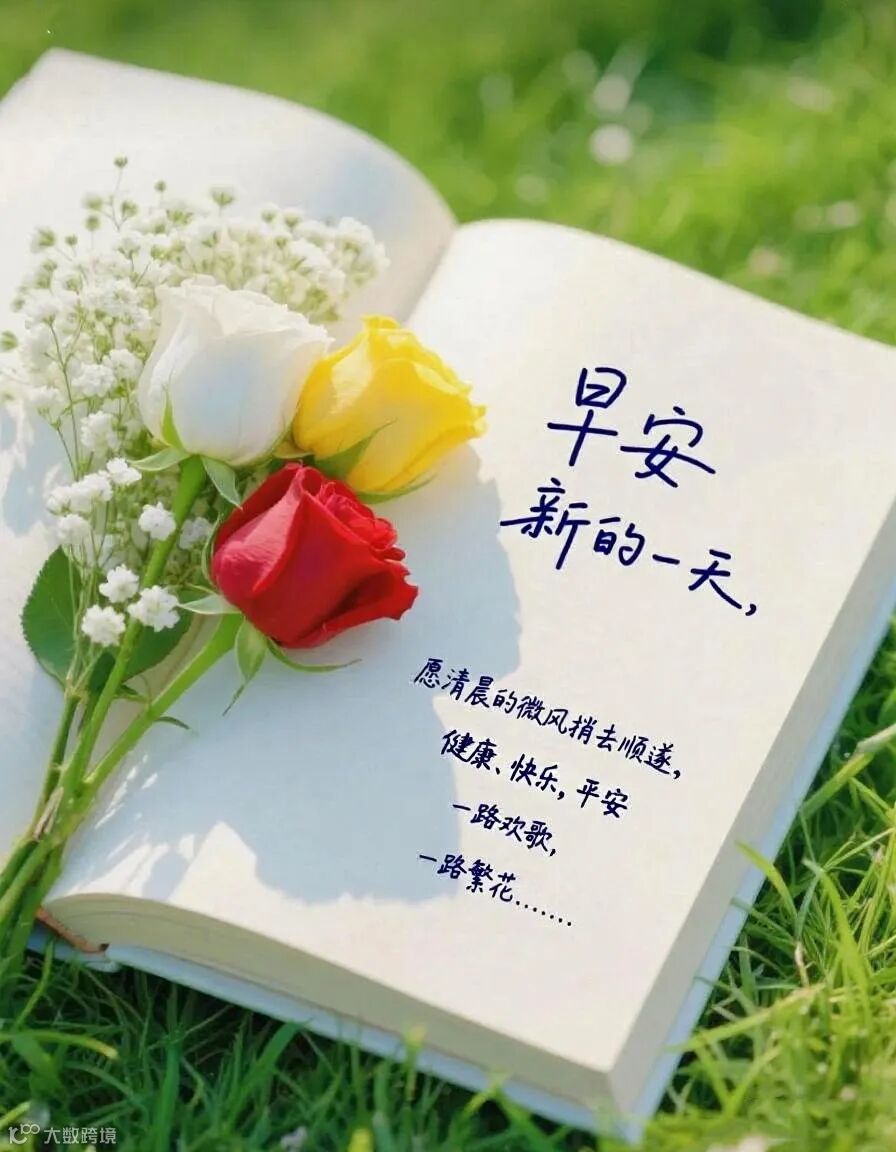 早安
新的一天,
愿清晨的微风捎去顺遂,
健康、快乐,平安
一路欢歌,
一路繁花.......
大数跨境